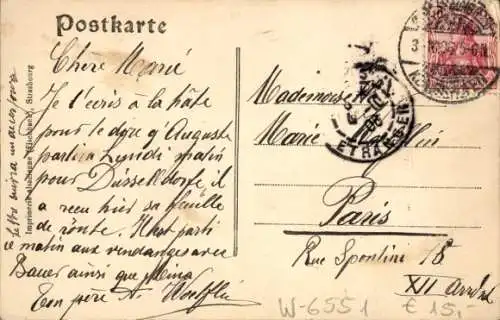 Postkarte
Chère Marie
Je t'écris à la hâte
pour te dire qu'Auguste
partira Lundi matin
pour Düsseldorf, il
a reçu hier sa feuille
de route. Il est parti
ce matin aux vendanges avec
Bauer ainsi que
Ton père A. Woelflin
Lettre suivra
Imprimerie alsacienne Strasbourg
Mademoiselle
Marie
Paris
Rue Spontini 18
XII Arrdt
ETRANGER
W-6551 € 15,-